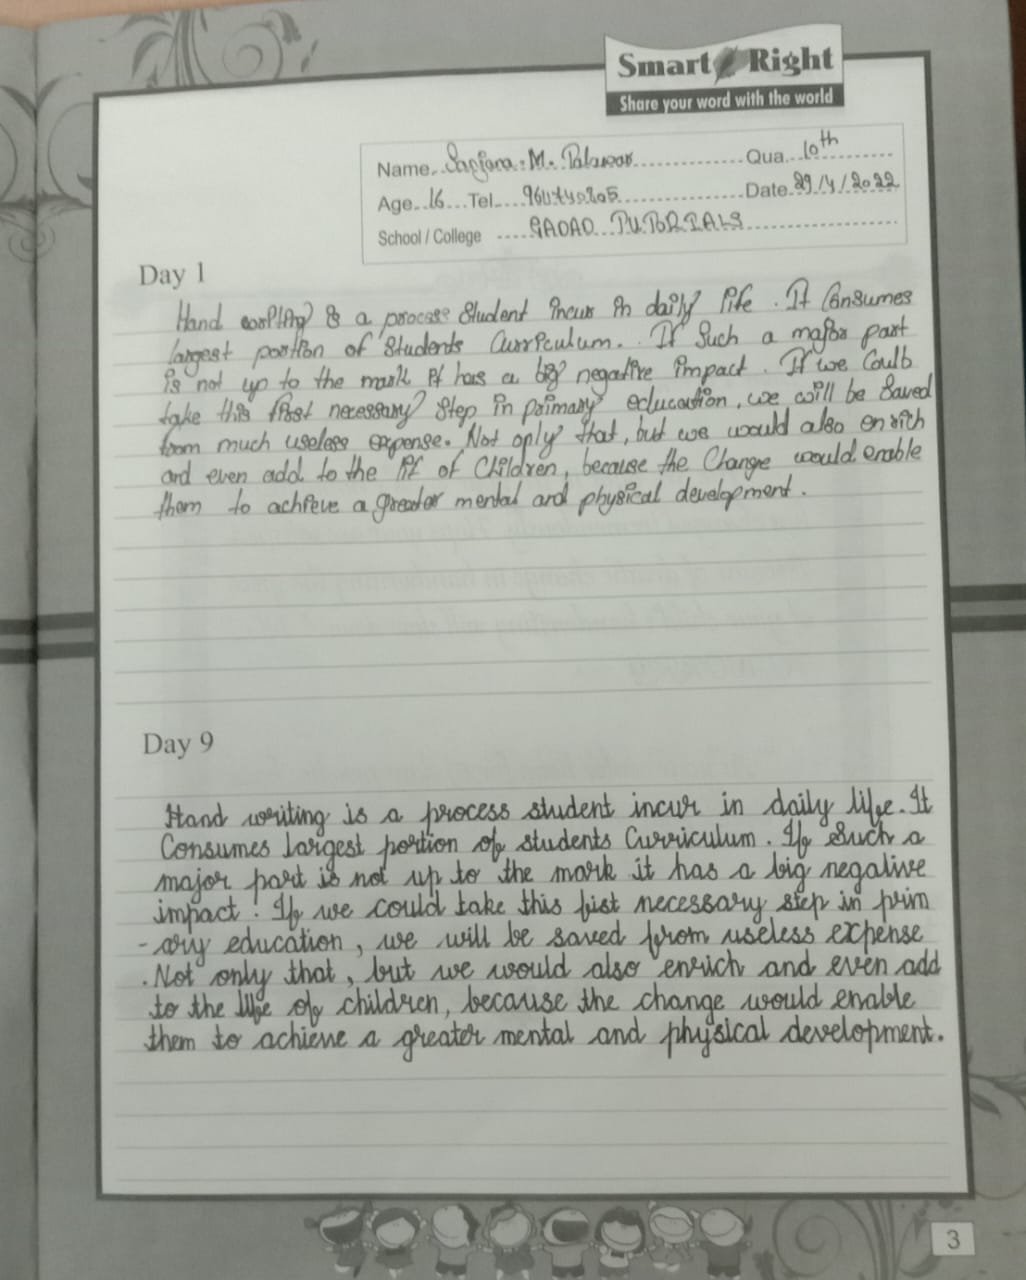 Smart Right
Share your word with the world
Name M. Qua. 10th
Age 16 Tel. Date 29/4/2022
School / College
Day 1
Hand writing is a process student incur in daily life. It Consumes
largest portion of Students Curriculum. If Such a major part
is not up to the mark it has a big negative impact. If we Coulb
take this first necessary Step in primary education, we will be Saved
from much useless expense. Not only that, but we would also enrich
and even add to the of Children, because the Change would enable
them to achieve a greater mental and physical development.
Day 9
Hand writing is a process student incur in daily life. It
Consumes Largest portion of students Curriculum. If Such a
major part is not up to the mark it has a big negative
impact. If we could take this fist necessary step in prim
-ary education, we will be saved from useless expense
.Not only that, but we would also enrich and even add
to the life of children, because the change would enable
them to achieve a greater mental and physical development.
3